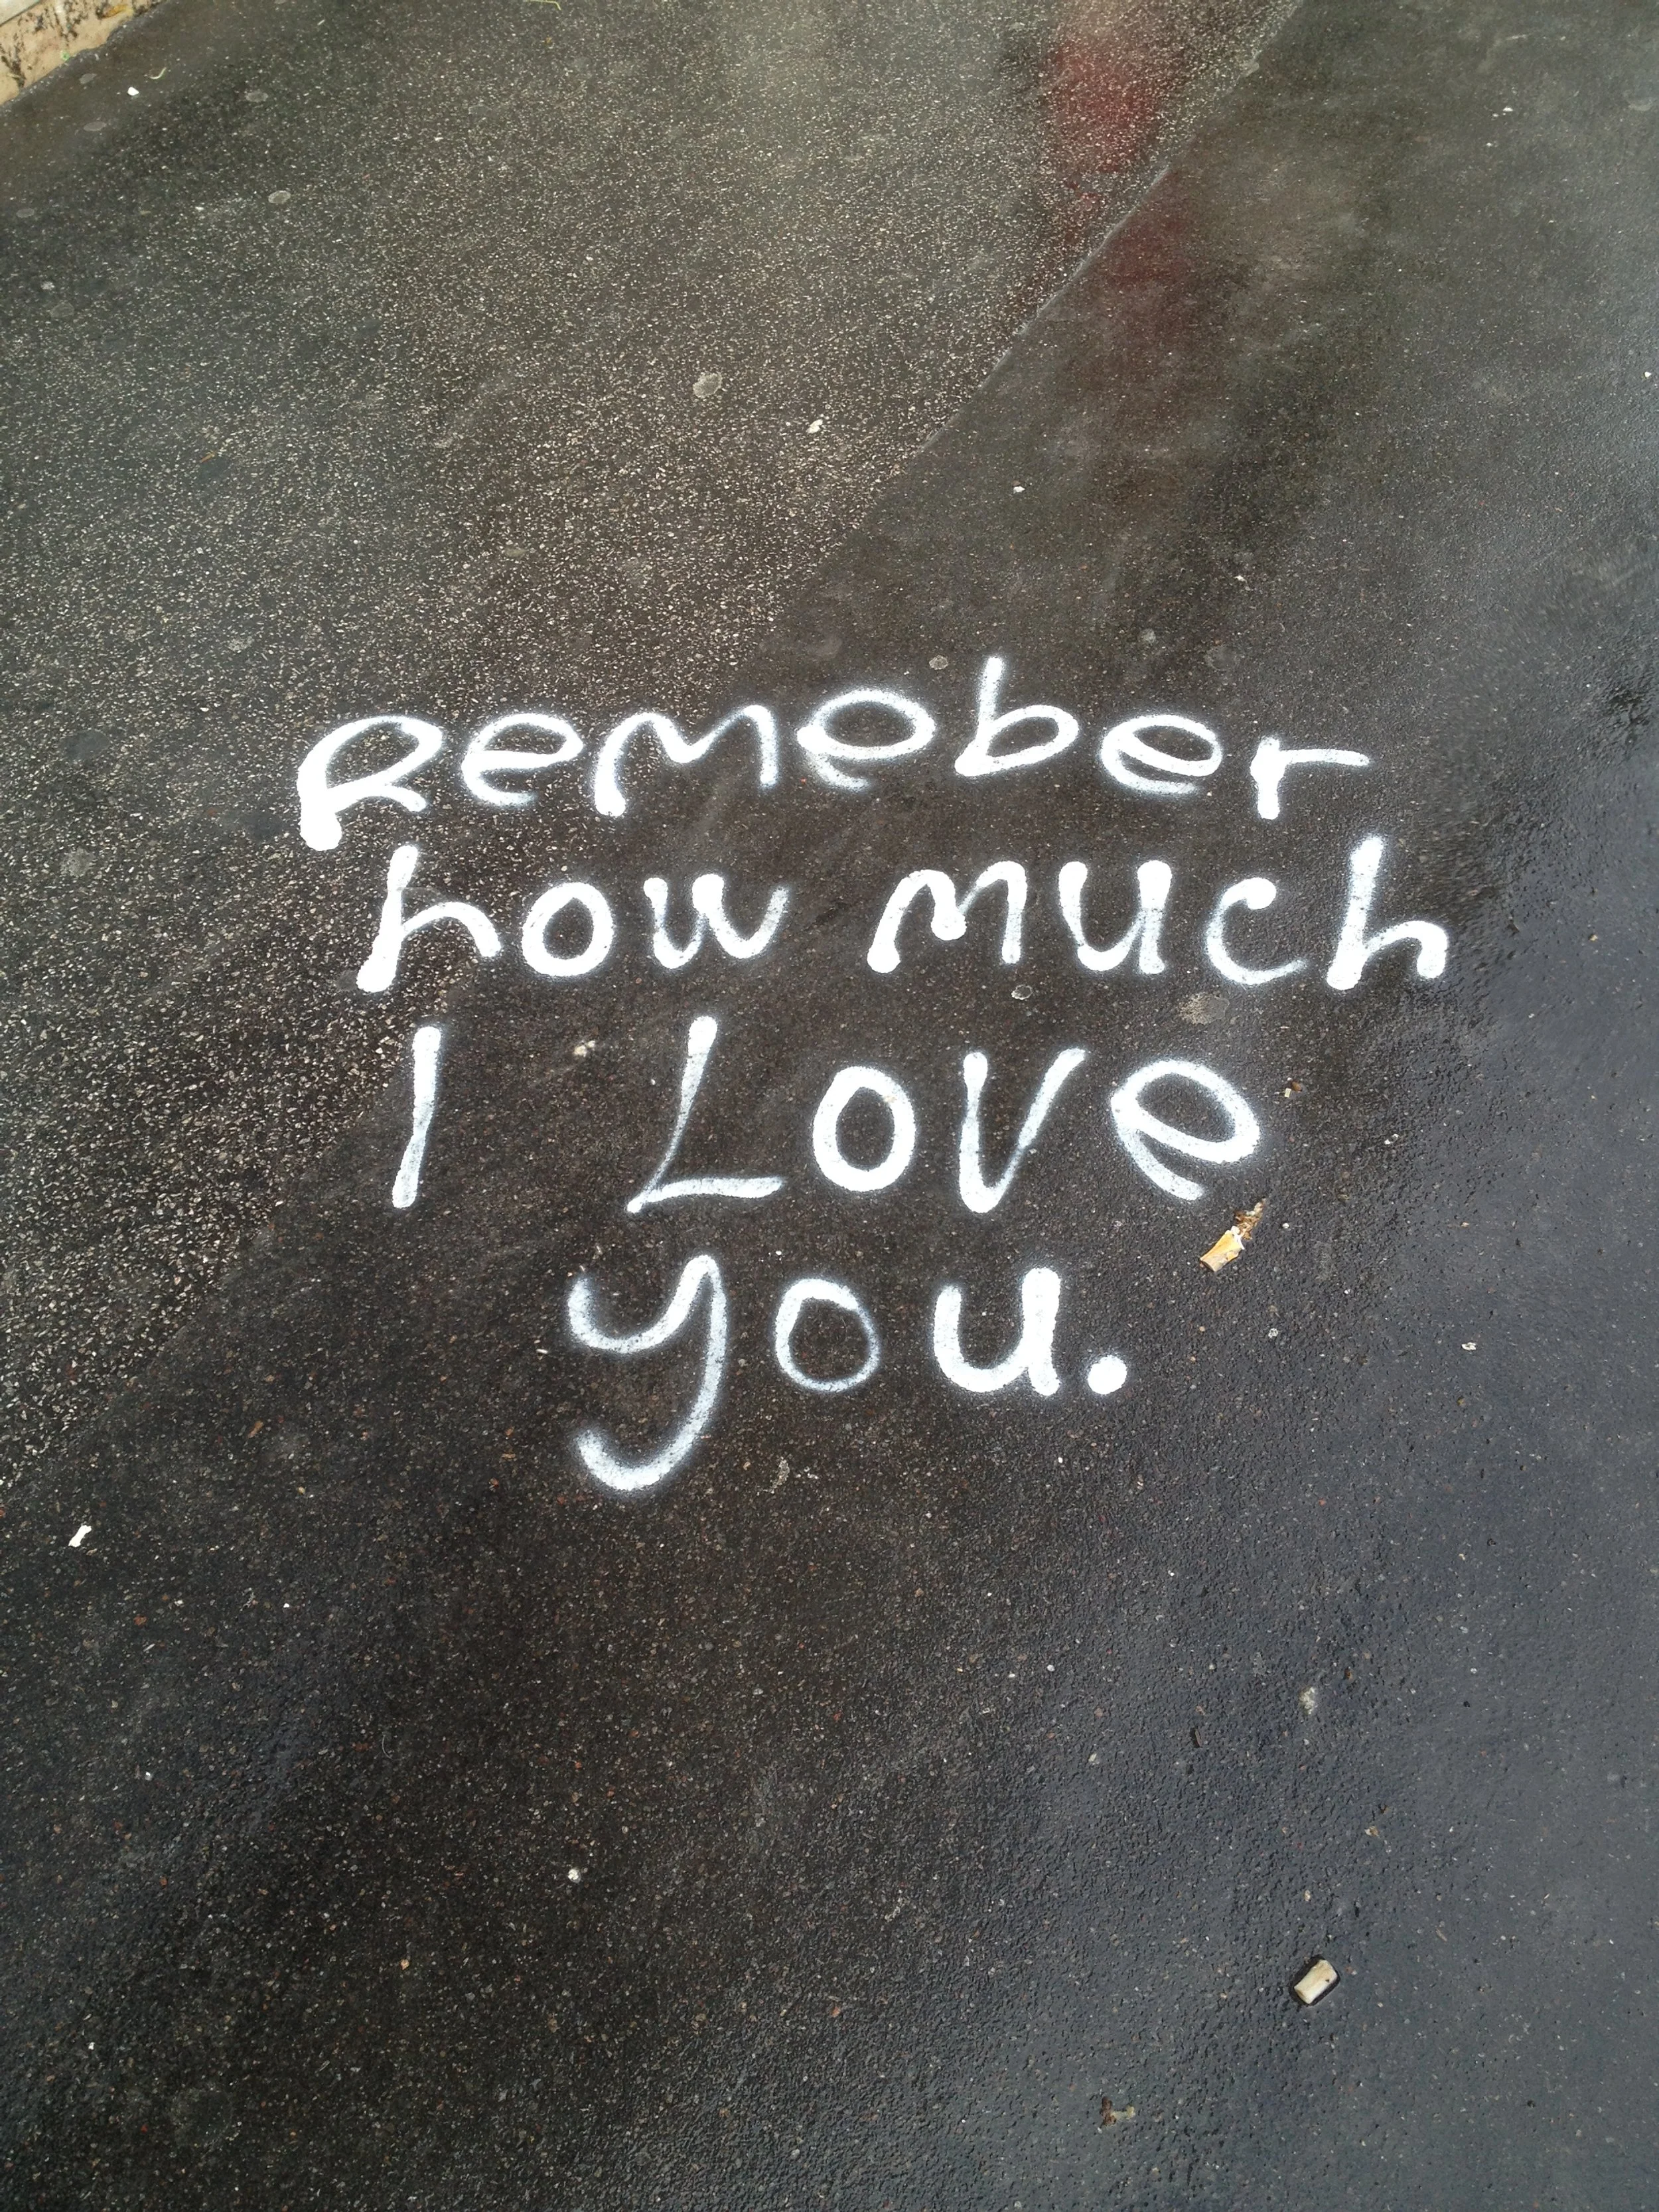 Remeber
how much
I Love
you.